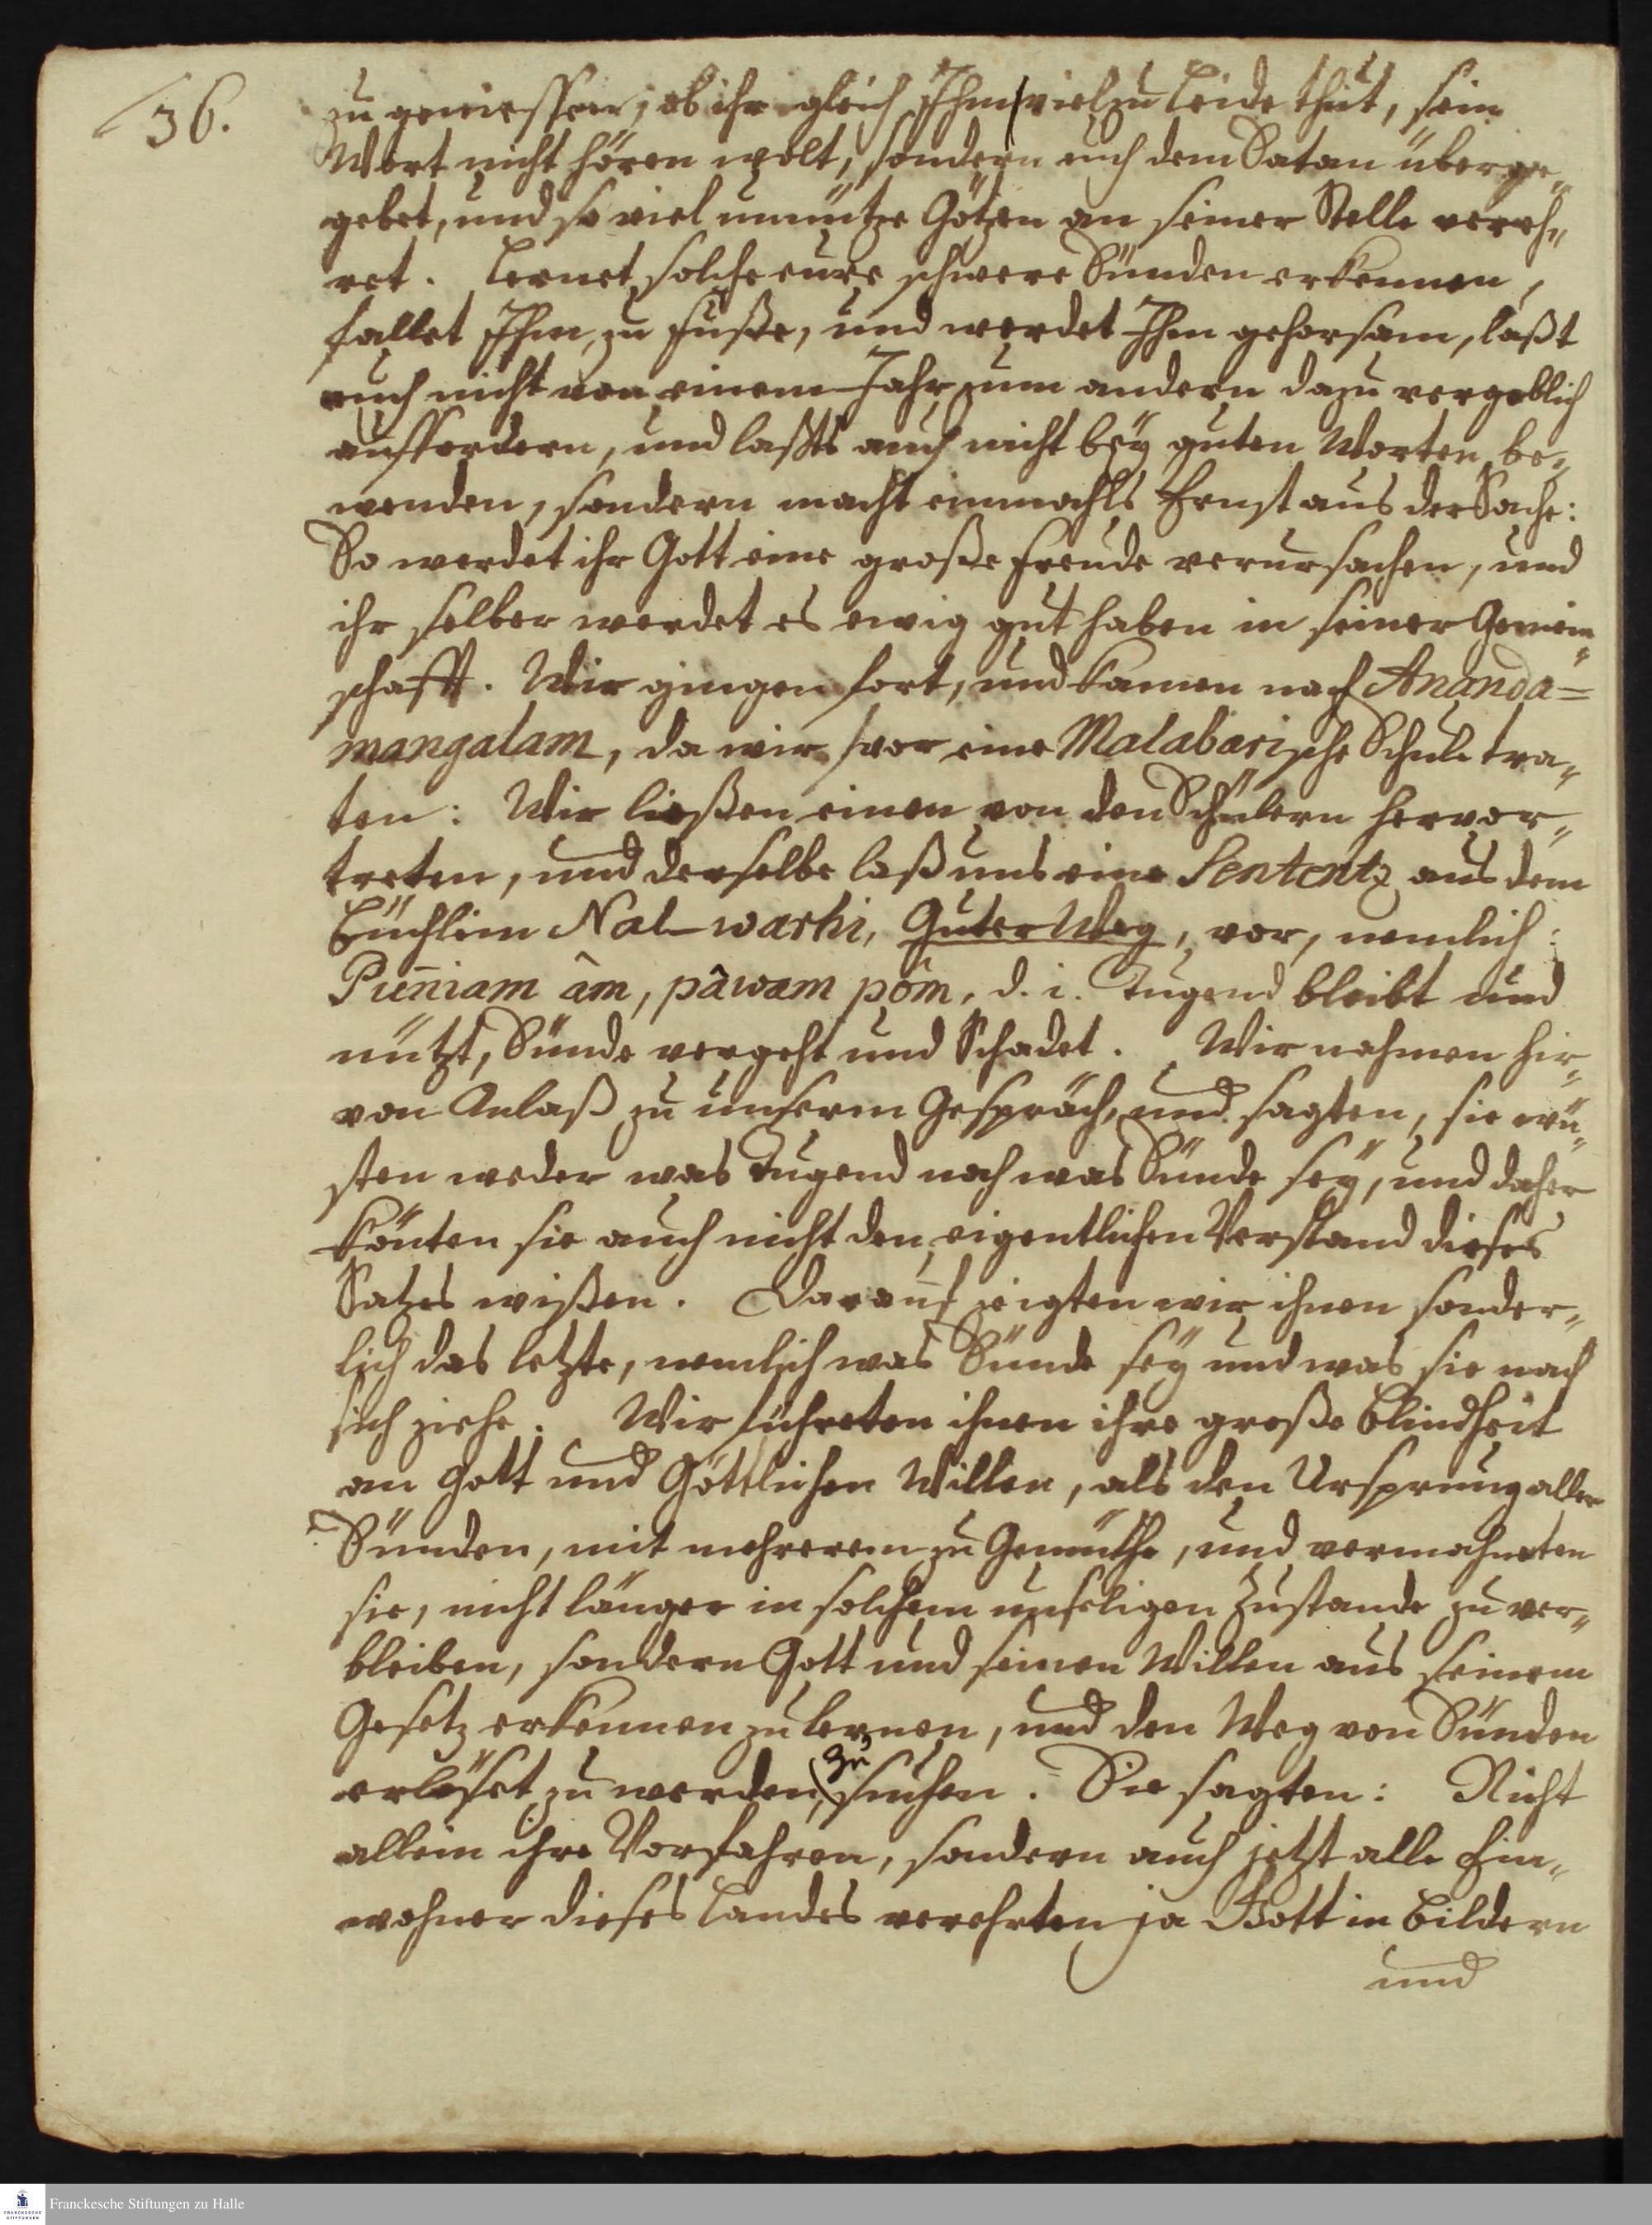 36.
zu geniessen; ob ihr gleich Ihm viel zu Leide thut, sein
Wort nicht hören wolt, sondern euch dem Satan überge„
gebet, und so viel unnütze Götzen an seiner Stelle vereh„
ret. Lernet solche eure schwere Sünden erkennen,
fallet Ihm zu Fuße, und werdet Ihm gehorsam, laßt
euch nicht von einem Jahr zum andern dazu vergeblich
auffordern, und laßts auch nicht bey guten Worten be„
wenden, sondern macht einmahls Ernst aus der Sache:
So werdet ihr Gott eine große Freude verursachen, und
ihr selber werdet es ewig gut haben in seiner Gemein„
schafft. Wir gingen fort, und kamen nach Ananda=
mangalam, da wir vor eine Malabarische Schule tra„
ten: Wir ließen einen von den Schülern hervor„
treten, und derselbe laß uns eine Sententz aus dem
Büchlein Nal-warhi, Guter Weg, vor, nemlich:
Puñniam âm, pâwam pôm, d. i. Tugend bleibt und
nützt, Sünde vergeht und Schadet. Wir nahmen hir„
von Anlaß zu unserm Gespräch, und sagten, sie wü„
sten weder was Tugend noch was Sünde sey, und daher
könten sie auch nicht den eigentlichen Verstand dieses
Satzes wißen. Darauf zeigten wir ihnen sonder„
lich das letzte, nemlich was Sünde sey und was sie nach
sich ziehe. Wir führeten ihnen ihre große Blindheit
an Gott und Göttlichen Willen, als den Ursprung aller
Sünden, mit mehrerem zu Gemüthe, und vermahneten
sie, nicht länger in solchem unseligen Zustande zu ver„
bleiben, sondern Gott und seinen Willen aus seinem
Gesetz erkennen zu lernen, und den Weg von Sünden
erlöset zu werden, zu suchen. Sie sagten: Nicht
allein ihre Vorfahren, sondern auch jetzt alle Ein„
wohner dieses Landes verehrten ja Gott in Bildern
und
Franckesche Stiftungen zu Halle
FRANCKESCHE
STIFTUNGEN